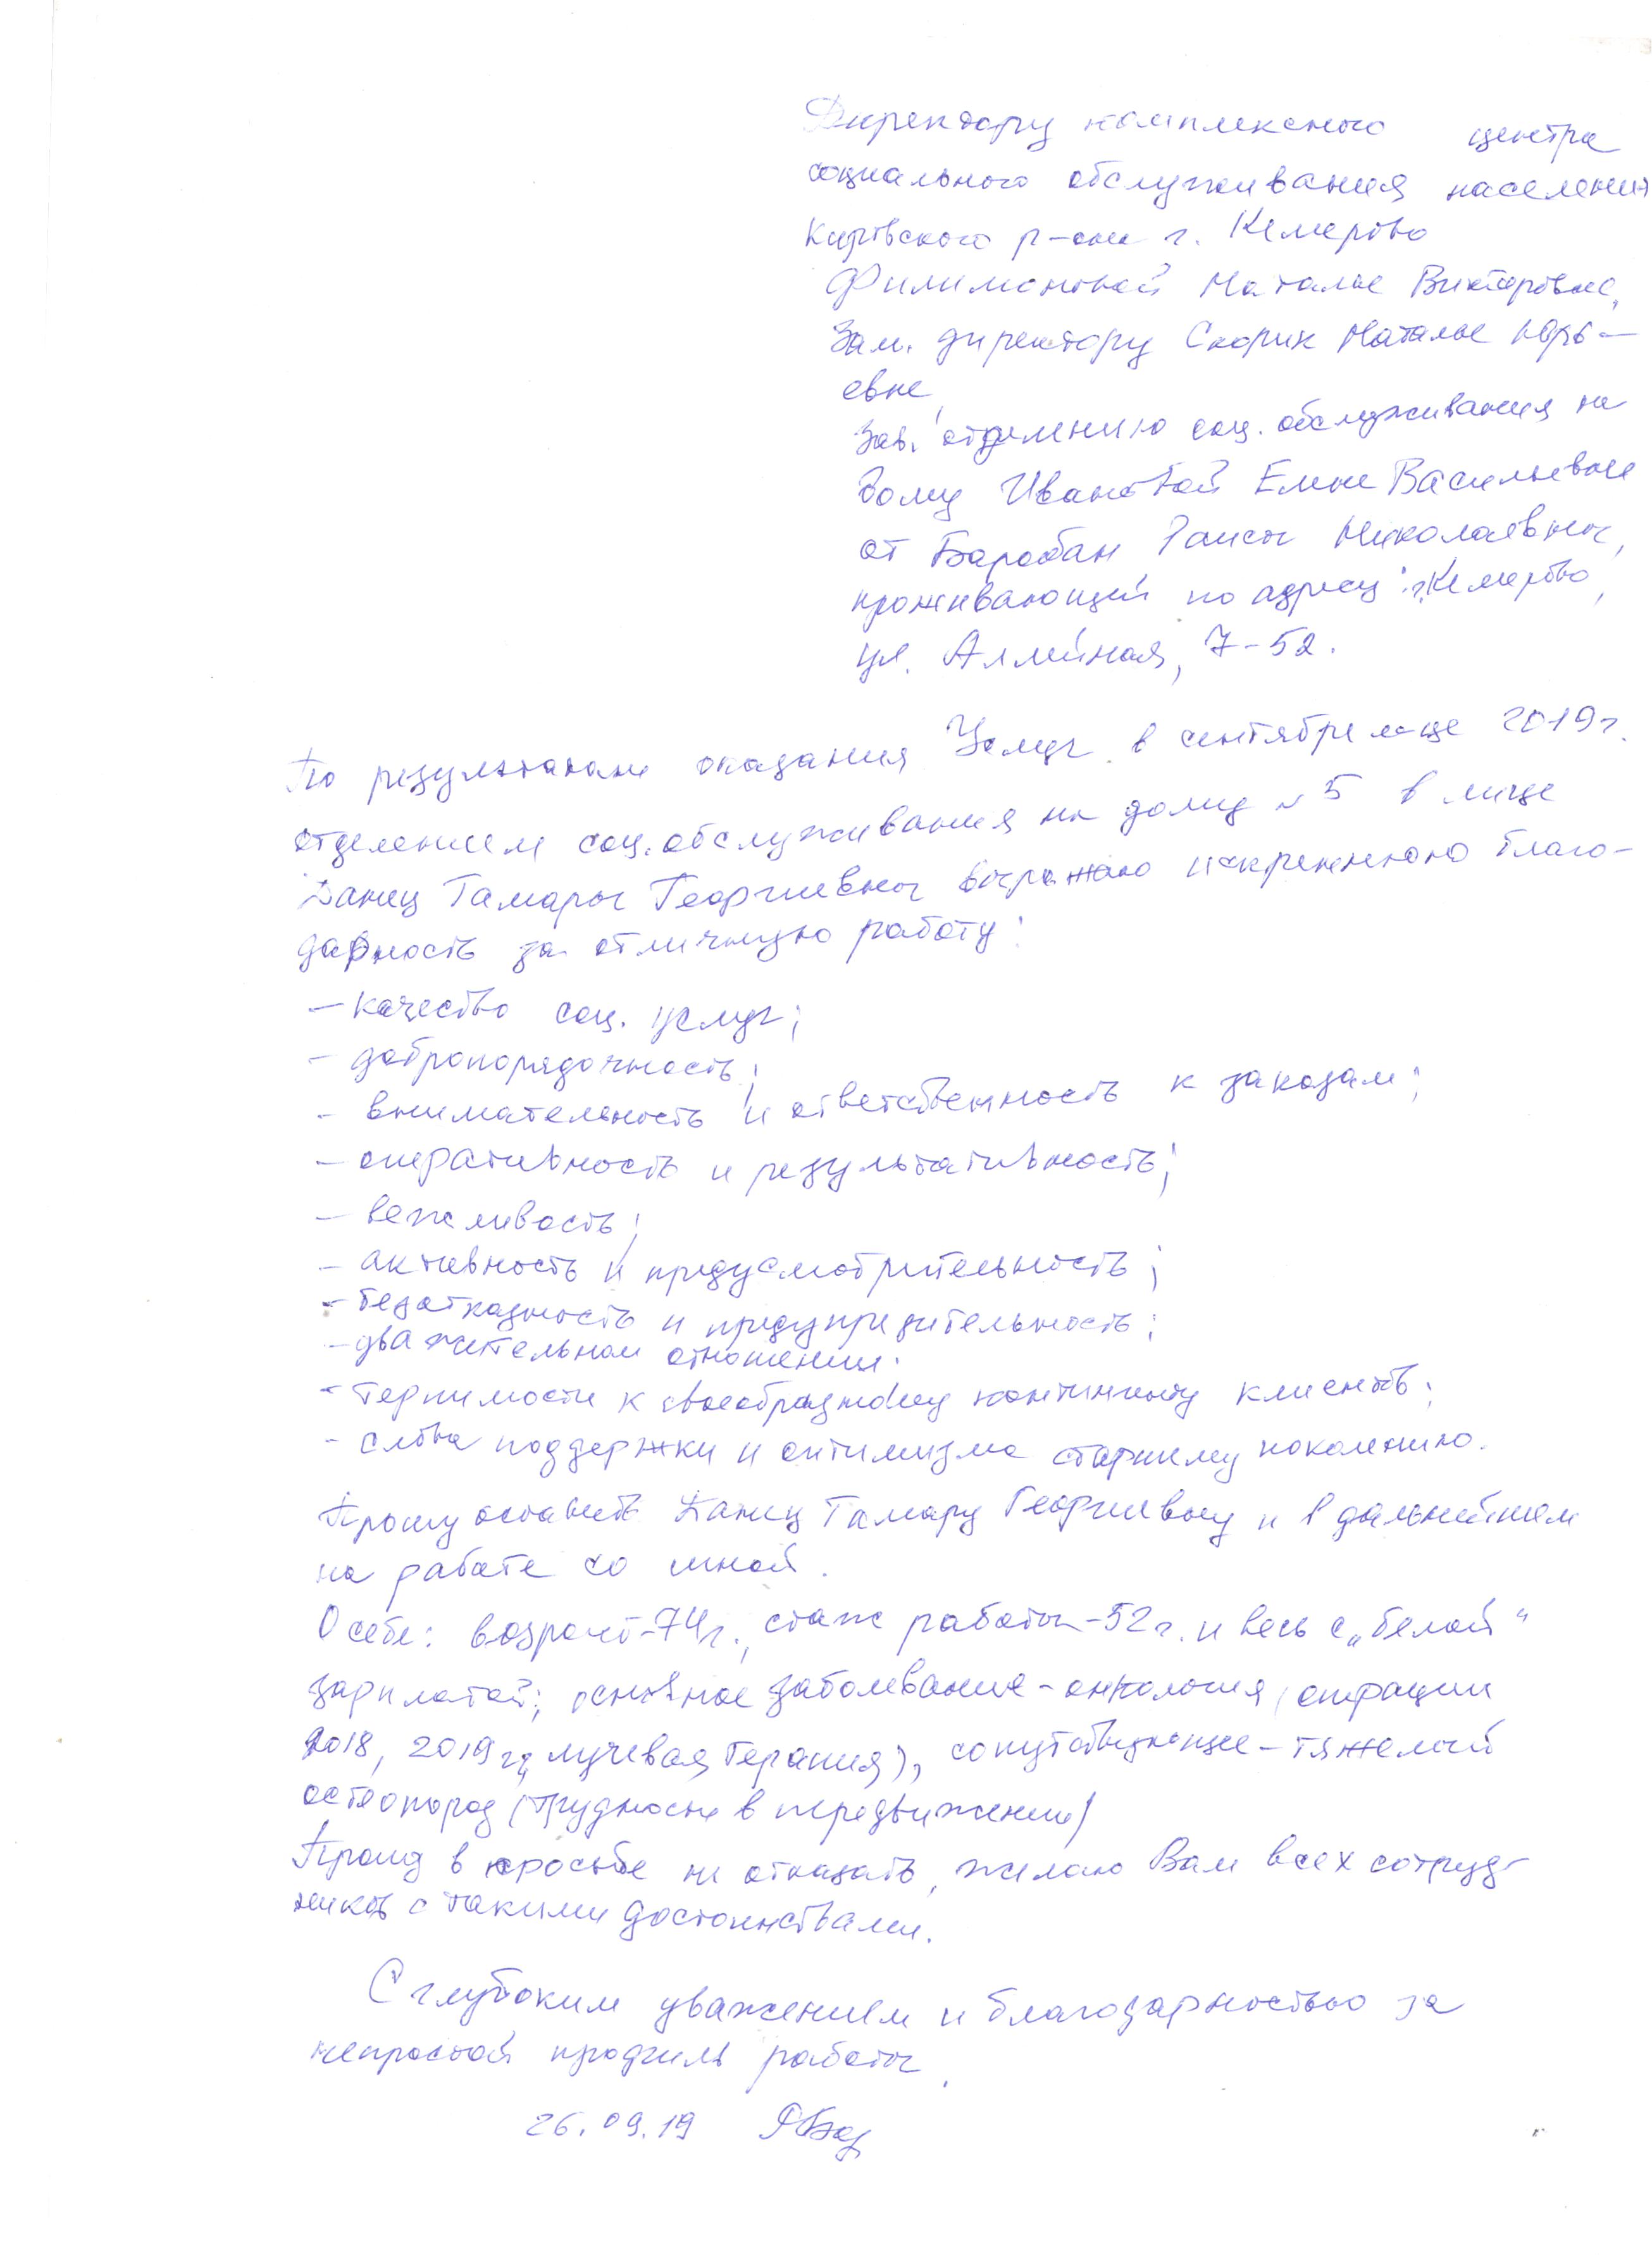 Директору комплексного центра
социального обслуживания населения
Кировского р-она г. Кемерово
Филимоновой Наталье Викторовне,
Зам. директору Скорик Наталье Юрь-
евне,
Зав. отделению соц. обслуживания на
дому Ивановой Елене Васильевне
от Барабан Раисы Николаевны,
проживающей по адресу: г. Кемерово,
ул. Аллейная, 7-52.
По результатам оказания Услуг в сентябре м-це 2019г.
отделением соц. обслуживания на дому №5 в лице
Данец Тамары Георгиевны выражаю искреннюю благо-
дарность за отличную работу:
- качество соц. услуг;
- добропорядочность;
- внимательность и ответственность к заказам;
- оперативность и результативность;
- вежливость;
- активность и предусмотрительность;
- безотказность и предупредительность;
- уважительном отношении.
- терпимости к своеобразному контингенту клиентов.
- слова поддержки и оптимизма старшему поколению.
Прошу оставить Данец Тамару Георгиевну и в дальнейшем
на работе со мной.
О себе: возраст-74г., стаж работы-52г. и весь с „белой“
зарплатой; основное заболевание - онкология (операции
2018, 2019гг, лучевая терапия), сопутствующее - тяжелый
остеопороз (трудности в передвижении)
Прошу в просьбе не отказать, желаю Вам всех сотруд-
ников с такими достоинствами.
С глубоким уважением и благодарностью за
непростой профиль работы.
26.09.19 РБар